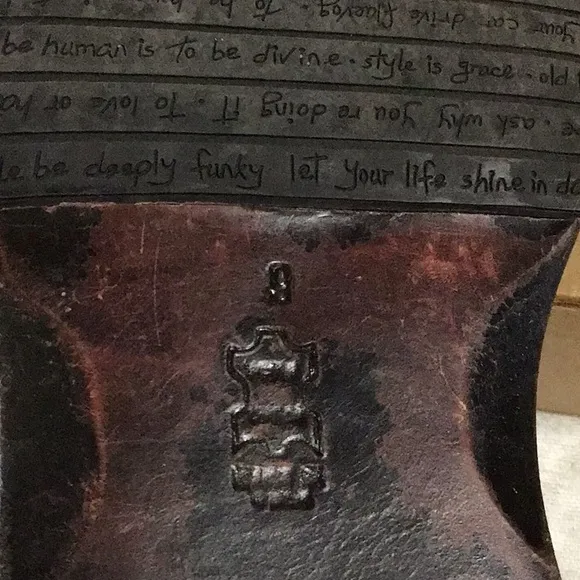 your car drive flaevog. To be hu
be human is to be divine. style is grace. old
e. ask why you're doing it. To love or ha
le be deeply funky let your life shine in da